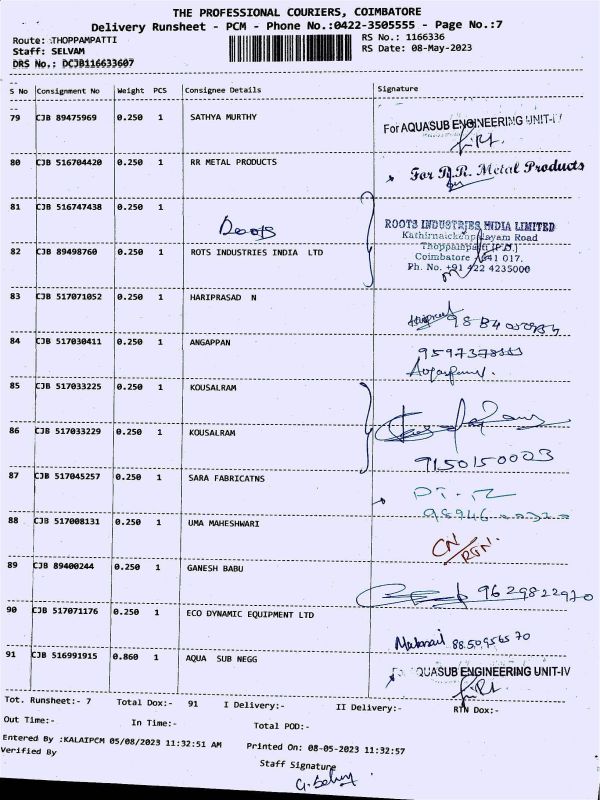 THE PROFESSIONAL COURIERS, COIMBATORE
Delivery Runsheet - PCM - Phone No.:0422-3505555 - Page No.:7
Route: :THOPPAMPATTI RS No.: 1166336
Staff: SELVAM RS Date: 08-May-2023
DRS No.: DCJB116633607
S No Consignment No Weight PCS Consignee Details Signature
79 CJB 89475969 0.250 1 SATHYA MURTHY
For AQUASUB ENGINEERING UNIT-IV
80 CJB 516704420 0.250 1 RR METAL PRODUCTS
For R.R. Metal Products
81 CJB 516747438 0.250 1
Roots
ROOTS INDUSTRIES INDIA LIMITED
Kathirnaickenpalayam Road
Thoppampatti (P.O.)
Coimbatore 641 017.
Ph. No. +91 422 4235000
82 CJB 89498760 0.250 1 ROTS INDUSTRIES INDIA LTD
83 CJB 517071052 0.250 1 HARIPRASAD N
84 CJB 517030411 0.250 1 ANGAPPAN
85 CJB 517033225 0.250 1 KOUSALRAM
86 CJB 517033229 0.250 1 KOUSALRAM
9150150003
87 CJB 517045257 0.250 1 SARA FABRICATNS
88 CJB 517008131 0.250 1 UMA MAHESHWARI
CN/RTN.
89 CJB 89400244 0.250 1 GANESH BABU
9629822970
90 CJB 517071176 0.250 1 ECO DYNAMIC EQUIPMENT LTD
91 CJB 516991915 0.860 1 AQUA SUB NEGG
AQUASUB ENGINEERING UNIT-IV
Tot. Runsheet:- 7 Total Dox:- 91 I Delivery:- II Delivery:- RTN Dox:-
Out Time:- In Time:- Total POD:-
Entered By :KALAIPCM 05/08/2023 11:32:51 AM Printed On: 08-05-2023 11:32:57
Verified By Staff Signature